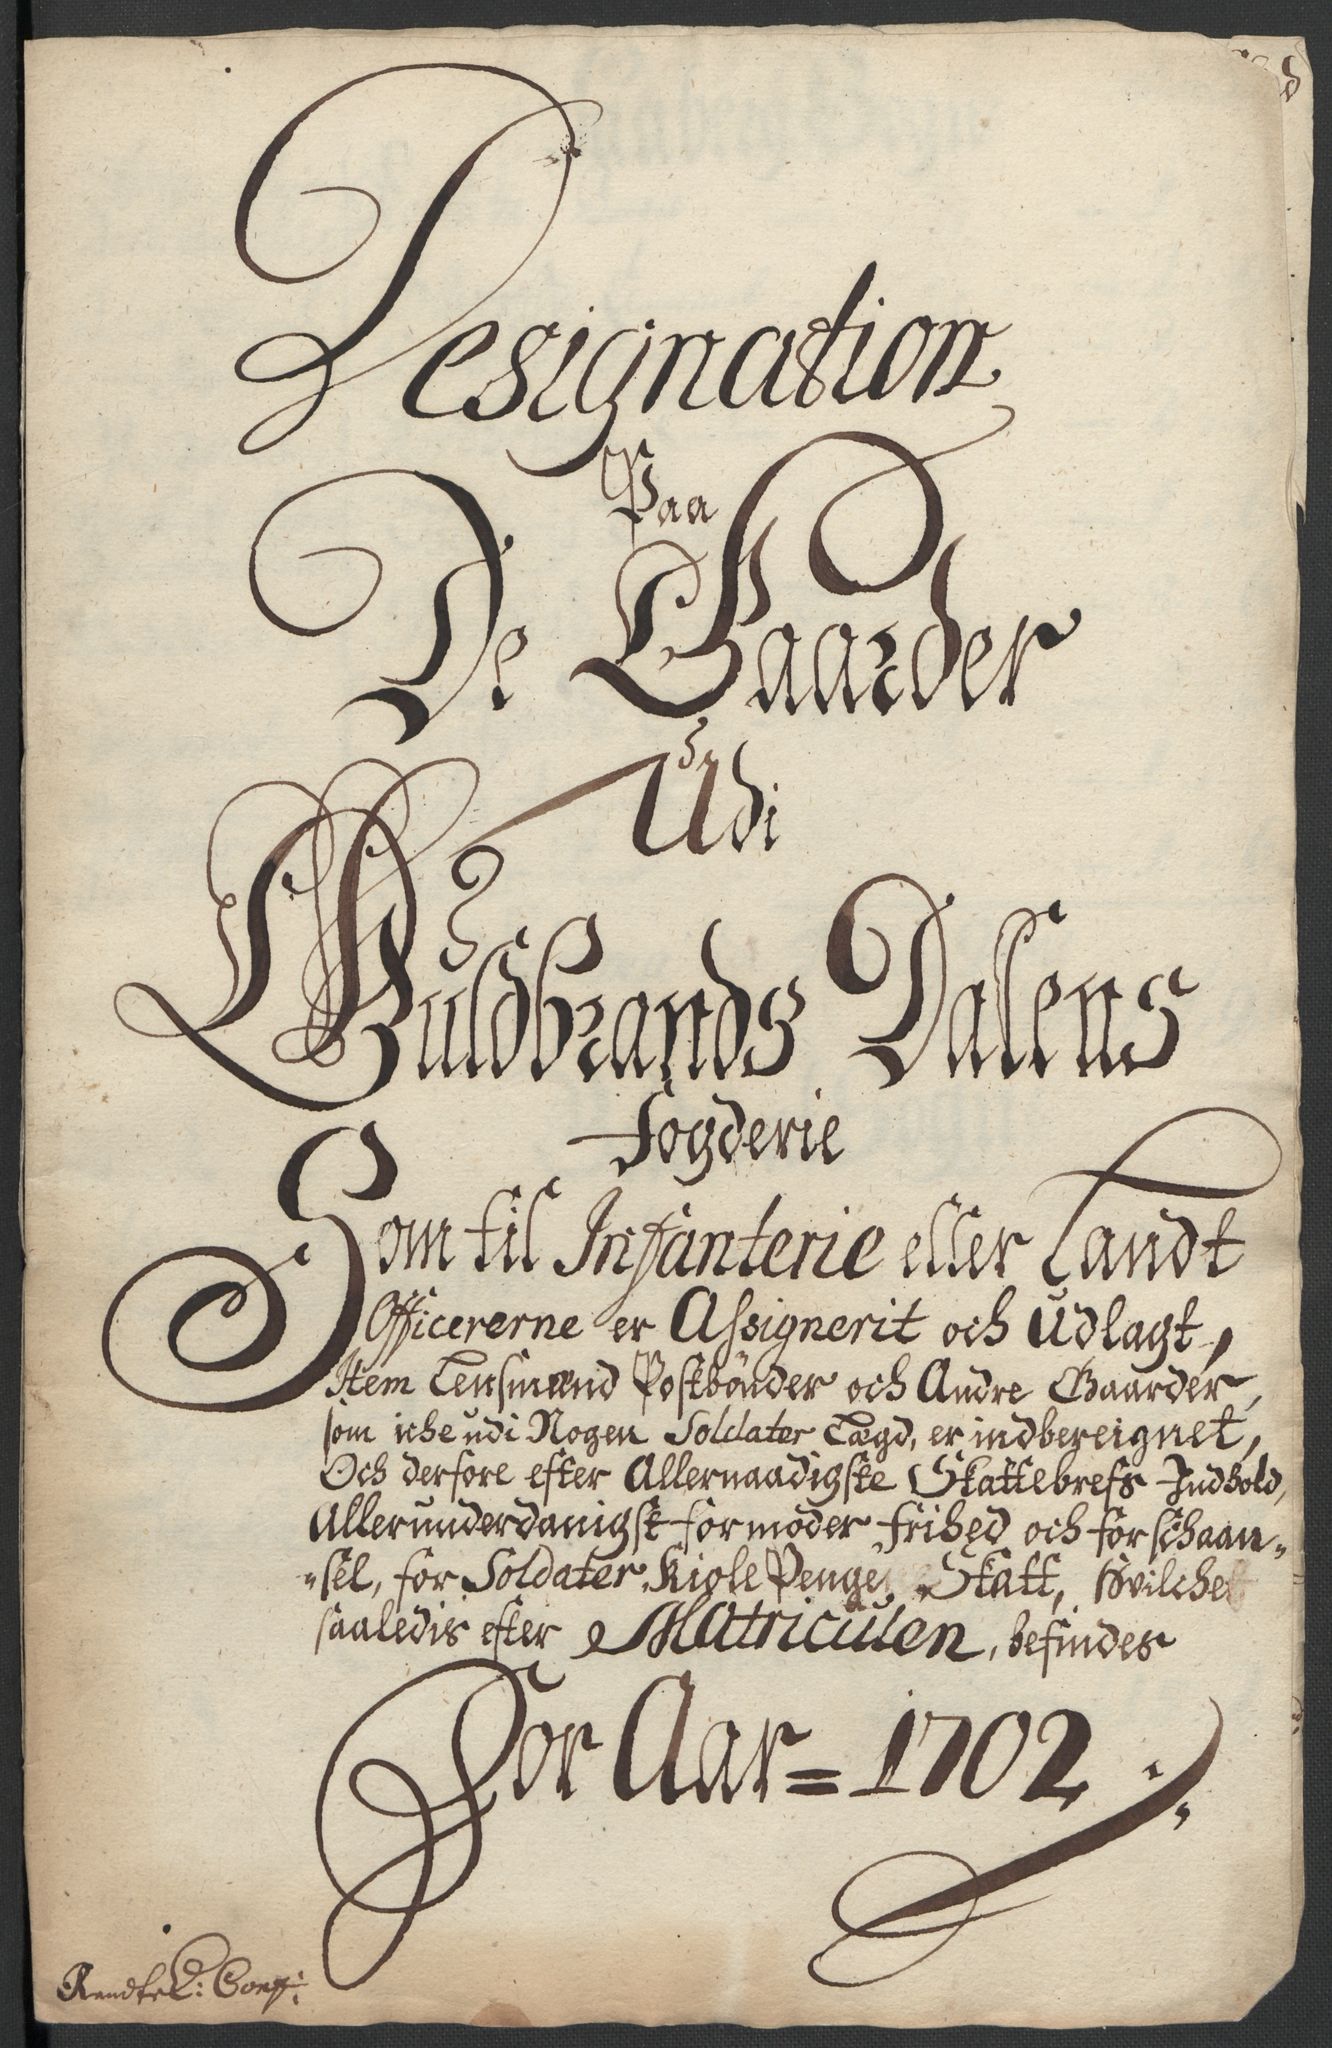 Designation
Paa
De Gaarder
Udi
Guldbrands Dalens
fogderie
Som til Infanterie eller Landt
Officererne er Assignerit och Udlagt,
Item Lensmænd Postbønder och Andre Gaarder,
som iche udi Nogen Soldater Lægd, er indbereignet,
Och derfore efter Allernaadigste Skattebrefs Indhold,
Allerunderdanigst formoder frihed och forschaan-
-sel, for Soldater Kiole Penge Skatt, Hvilchet
saaledis efter Matriculen, befindes
For Aar = 1702